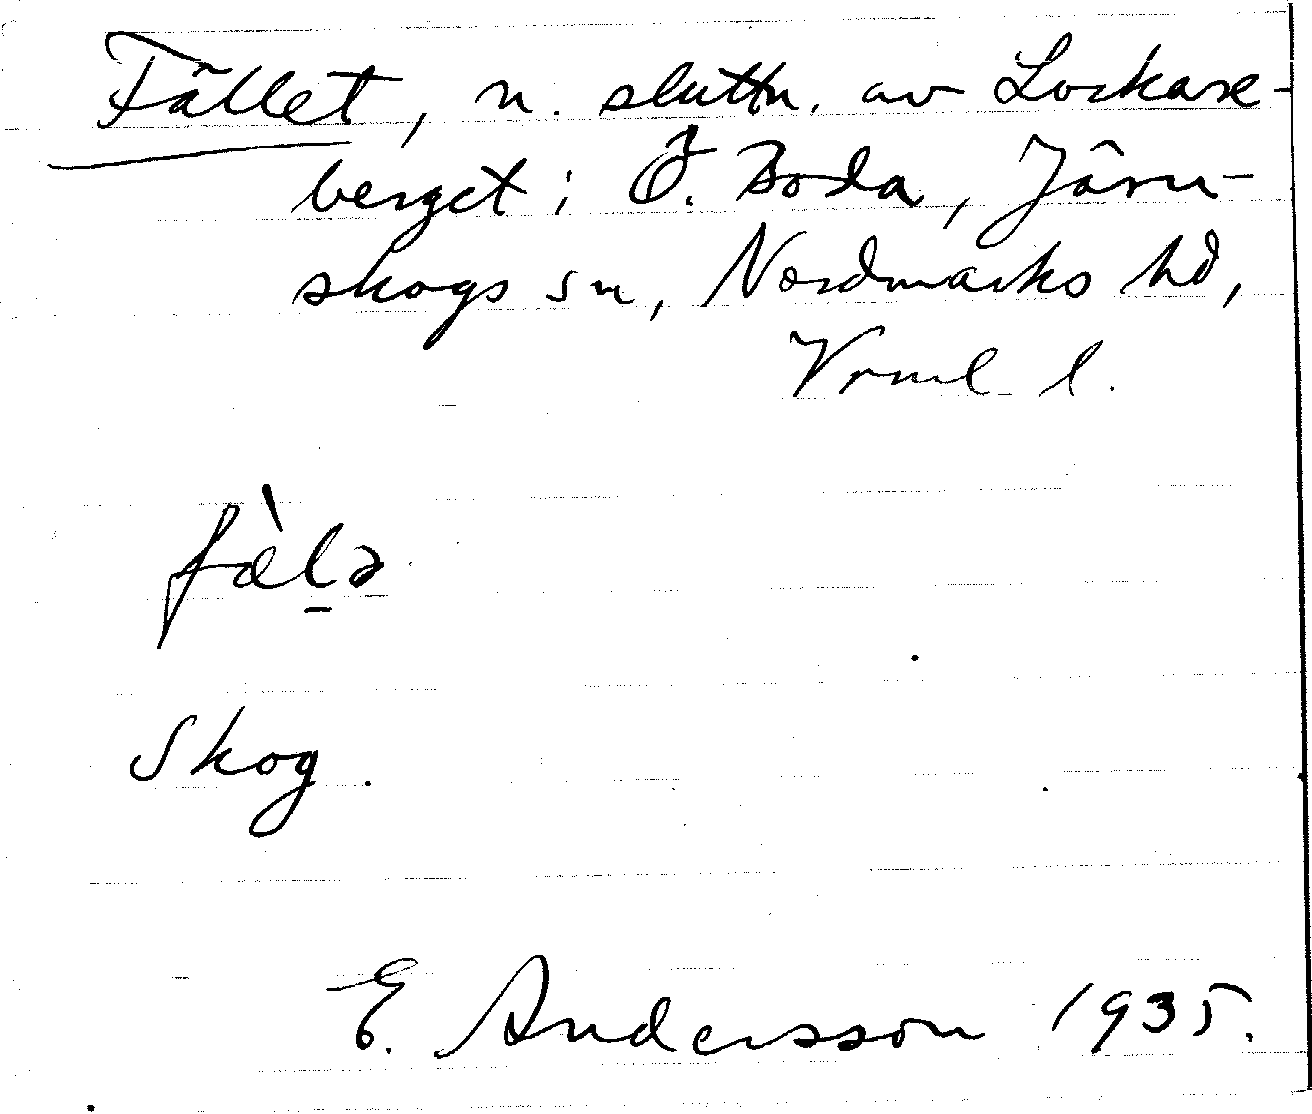 Fället, n. sluttn. av Lockare-
berget i Ö. Boda, Järn-
skogs sn, Nordmarks hd,
Vrml l.
fàl̠ə
Skog.
E. Andersson 1935.